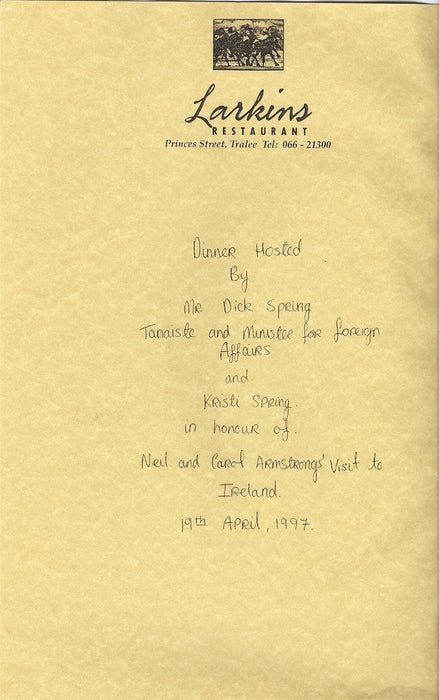 Larkins
RESTAURANT
Princes Street, Tralee Tel: 066 - 21300
Dinner Hosted
By
Mr Dick Spring
Tanaiste and Minister for foreign
Affairs
and
Kristi Spring.
in honour of.
Neil and Carol Armstrongs' Visit to
Ireland.
19th April, 1997.